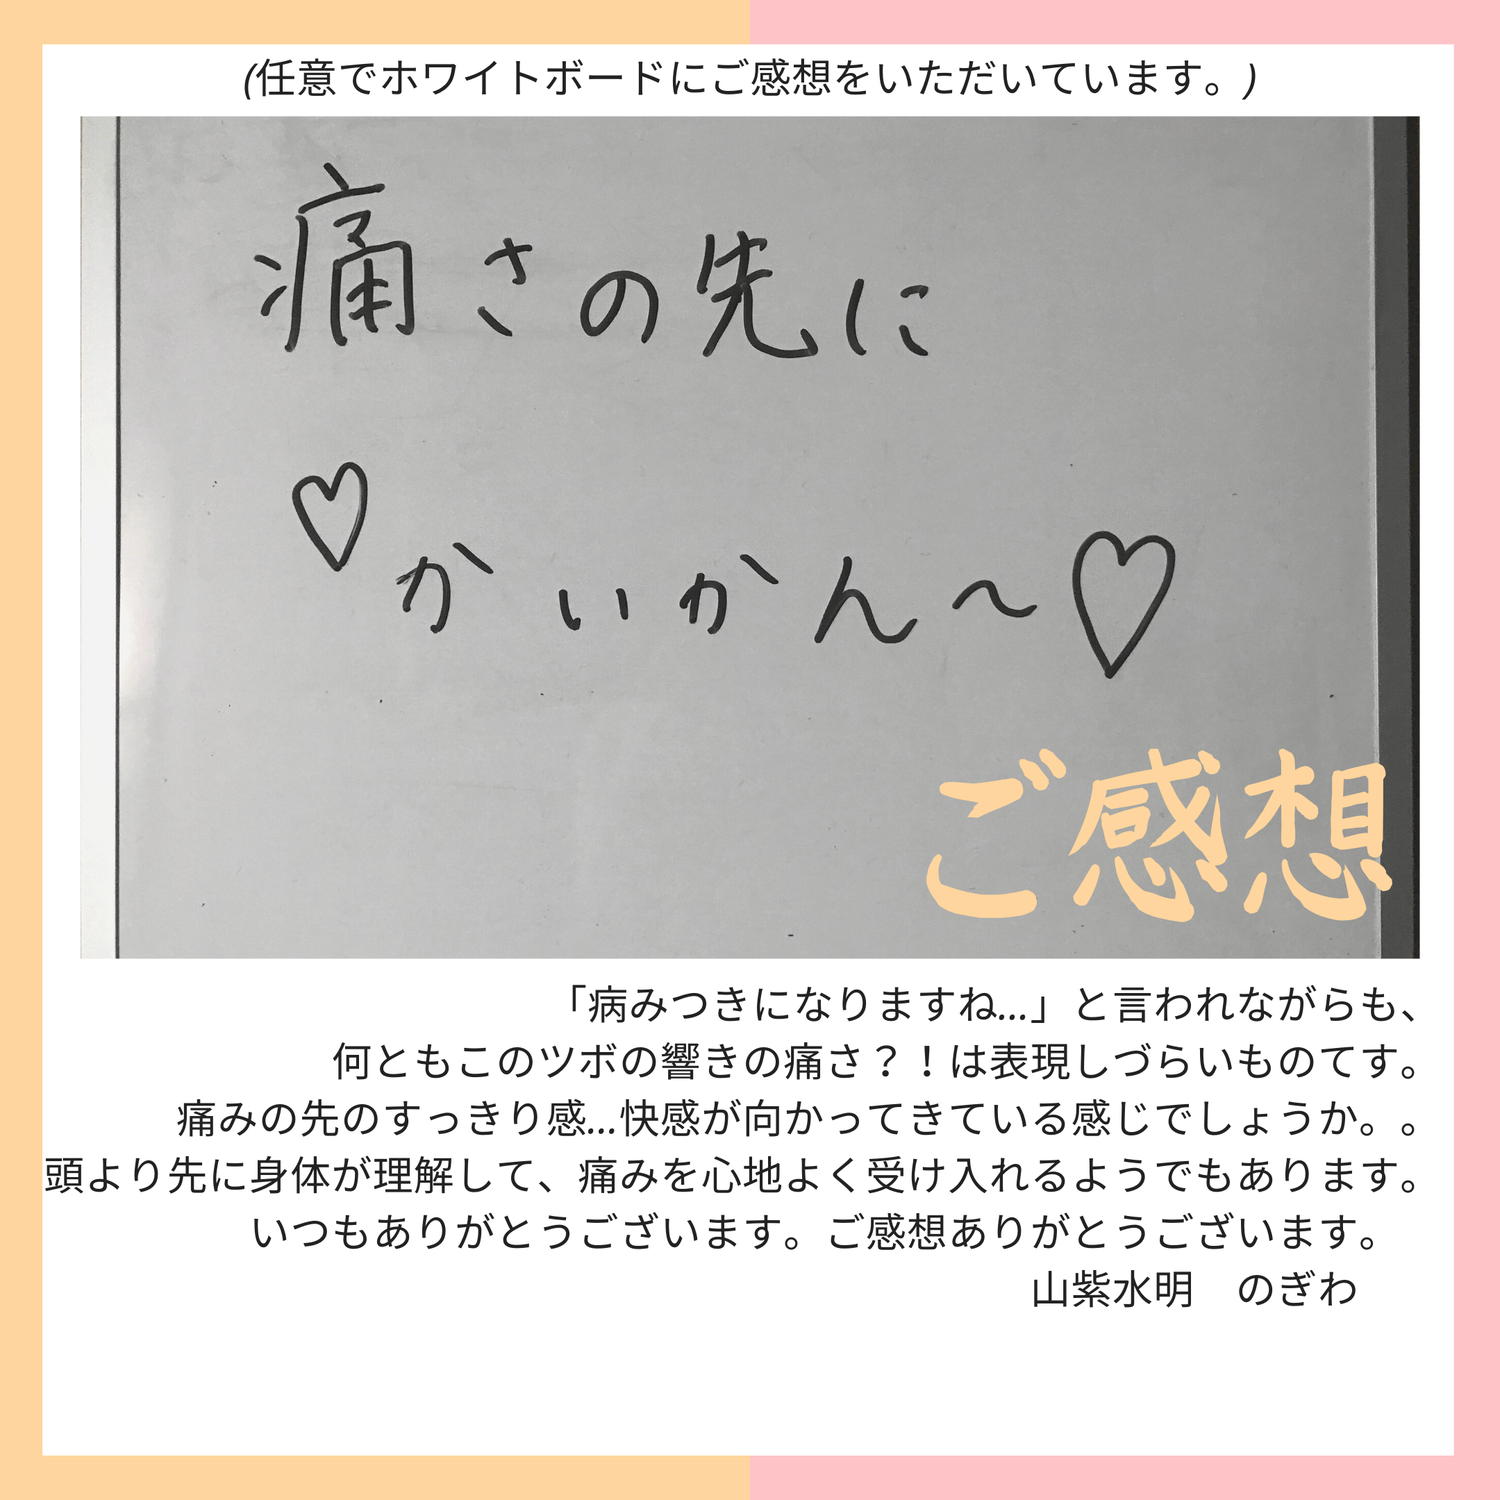 (任意でホワイトボードにご感想をいただいています。)
痛さの先に
♡かいかん～♡
ご感想
「病みつきになりますね...」と言われながらも、
何ともこのツボの響きの痛さ？！は表現しづらいものてす。
痛みの先のすっきり感...快感が向かってきている感じでしょうか。。
頭より先に身体が理解して、痛みを心地よく受け入れるようでもあります。
いつもありがとうございます。ご感想ありがとうございます。
山紫水明　のぎわ